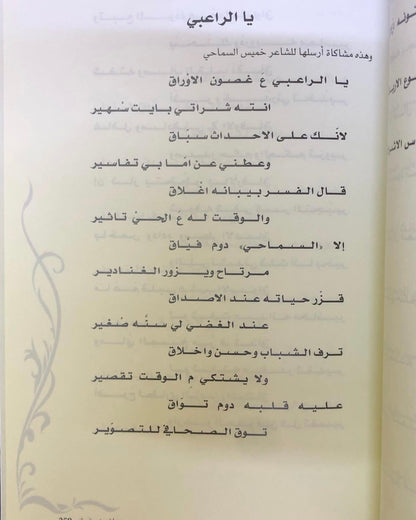 يا الراعبي
وهذه مشاكاة أرسلها للشاعر خميس السماحي
يا الراعبي عَ غصون الاوراق
انته شراتي بايت سهير
لأنك على الاحداث سبّاق
وعطني عن امّا بي تفاسير
قال الفسر بيبانه اغلاق
والوقت له عَ الحيّ تاثير
إلا «السماحي» دوم فيّاق
مرتاح ويزور الغنادير
قزّر حياته عند الاصداق
عند الغضي لي سنّه صْغير
ترف الشباب وحسن واخلاق
ولا يشتكي مِ الوقت تقصير
عليه قلبه دوم توّاق
توق الصحافي للتصوير